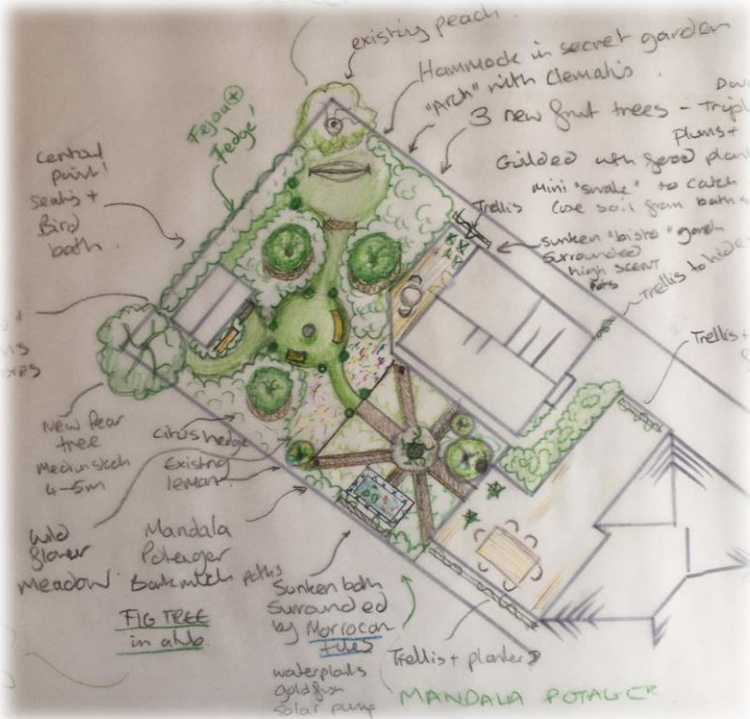 existing peach
Hammock in secret garden
"Arch" with Clematis
3 new fruit trees - Tripl
plums +
Guilded with good plan
Mini "swale" to catch
(use soil from bath
Trellis
sunken "bistro" garde
surrounded
high scent
pots
Trellis to hide
Trellis +
Feijoa
Hedge
Central
point!
seating +
Bird
bath
New Pear
tree
Medium
4-5m
citrus hedge
Existing
lemon
Wild
flower
Meadow
Mandala
Potager
Bark mulch paths
FIG TREE
in
Sunken bath
Surrounded
by Morrocan
tiles
waterplants
goldfish
solar pump
Trellis + planters
MANDALA POTAGER